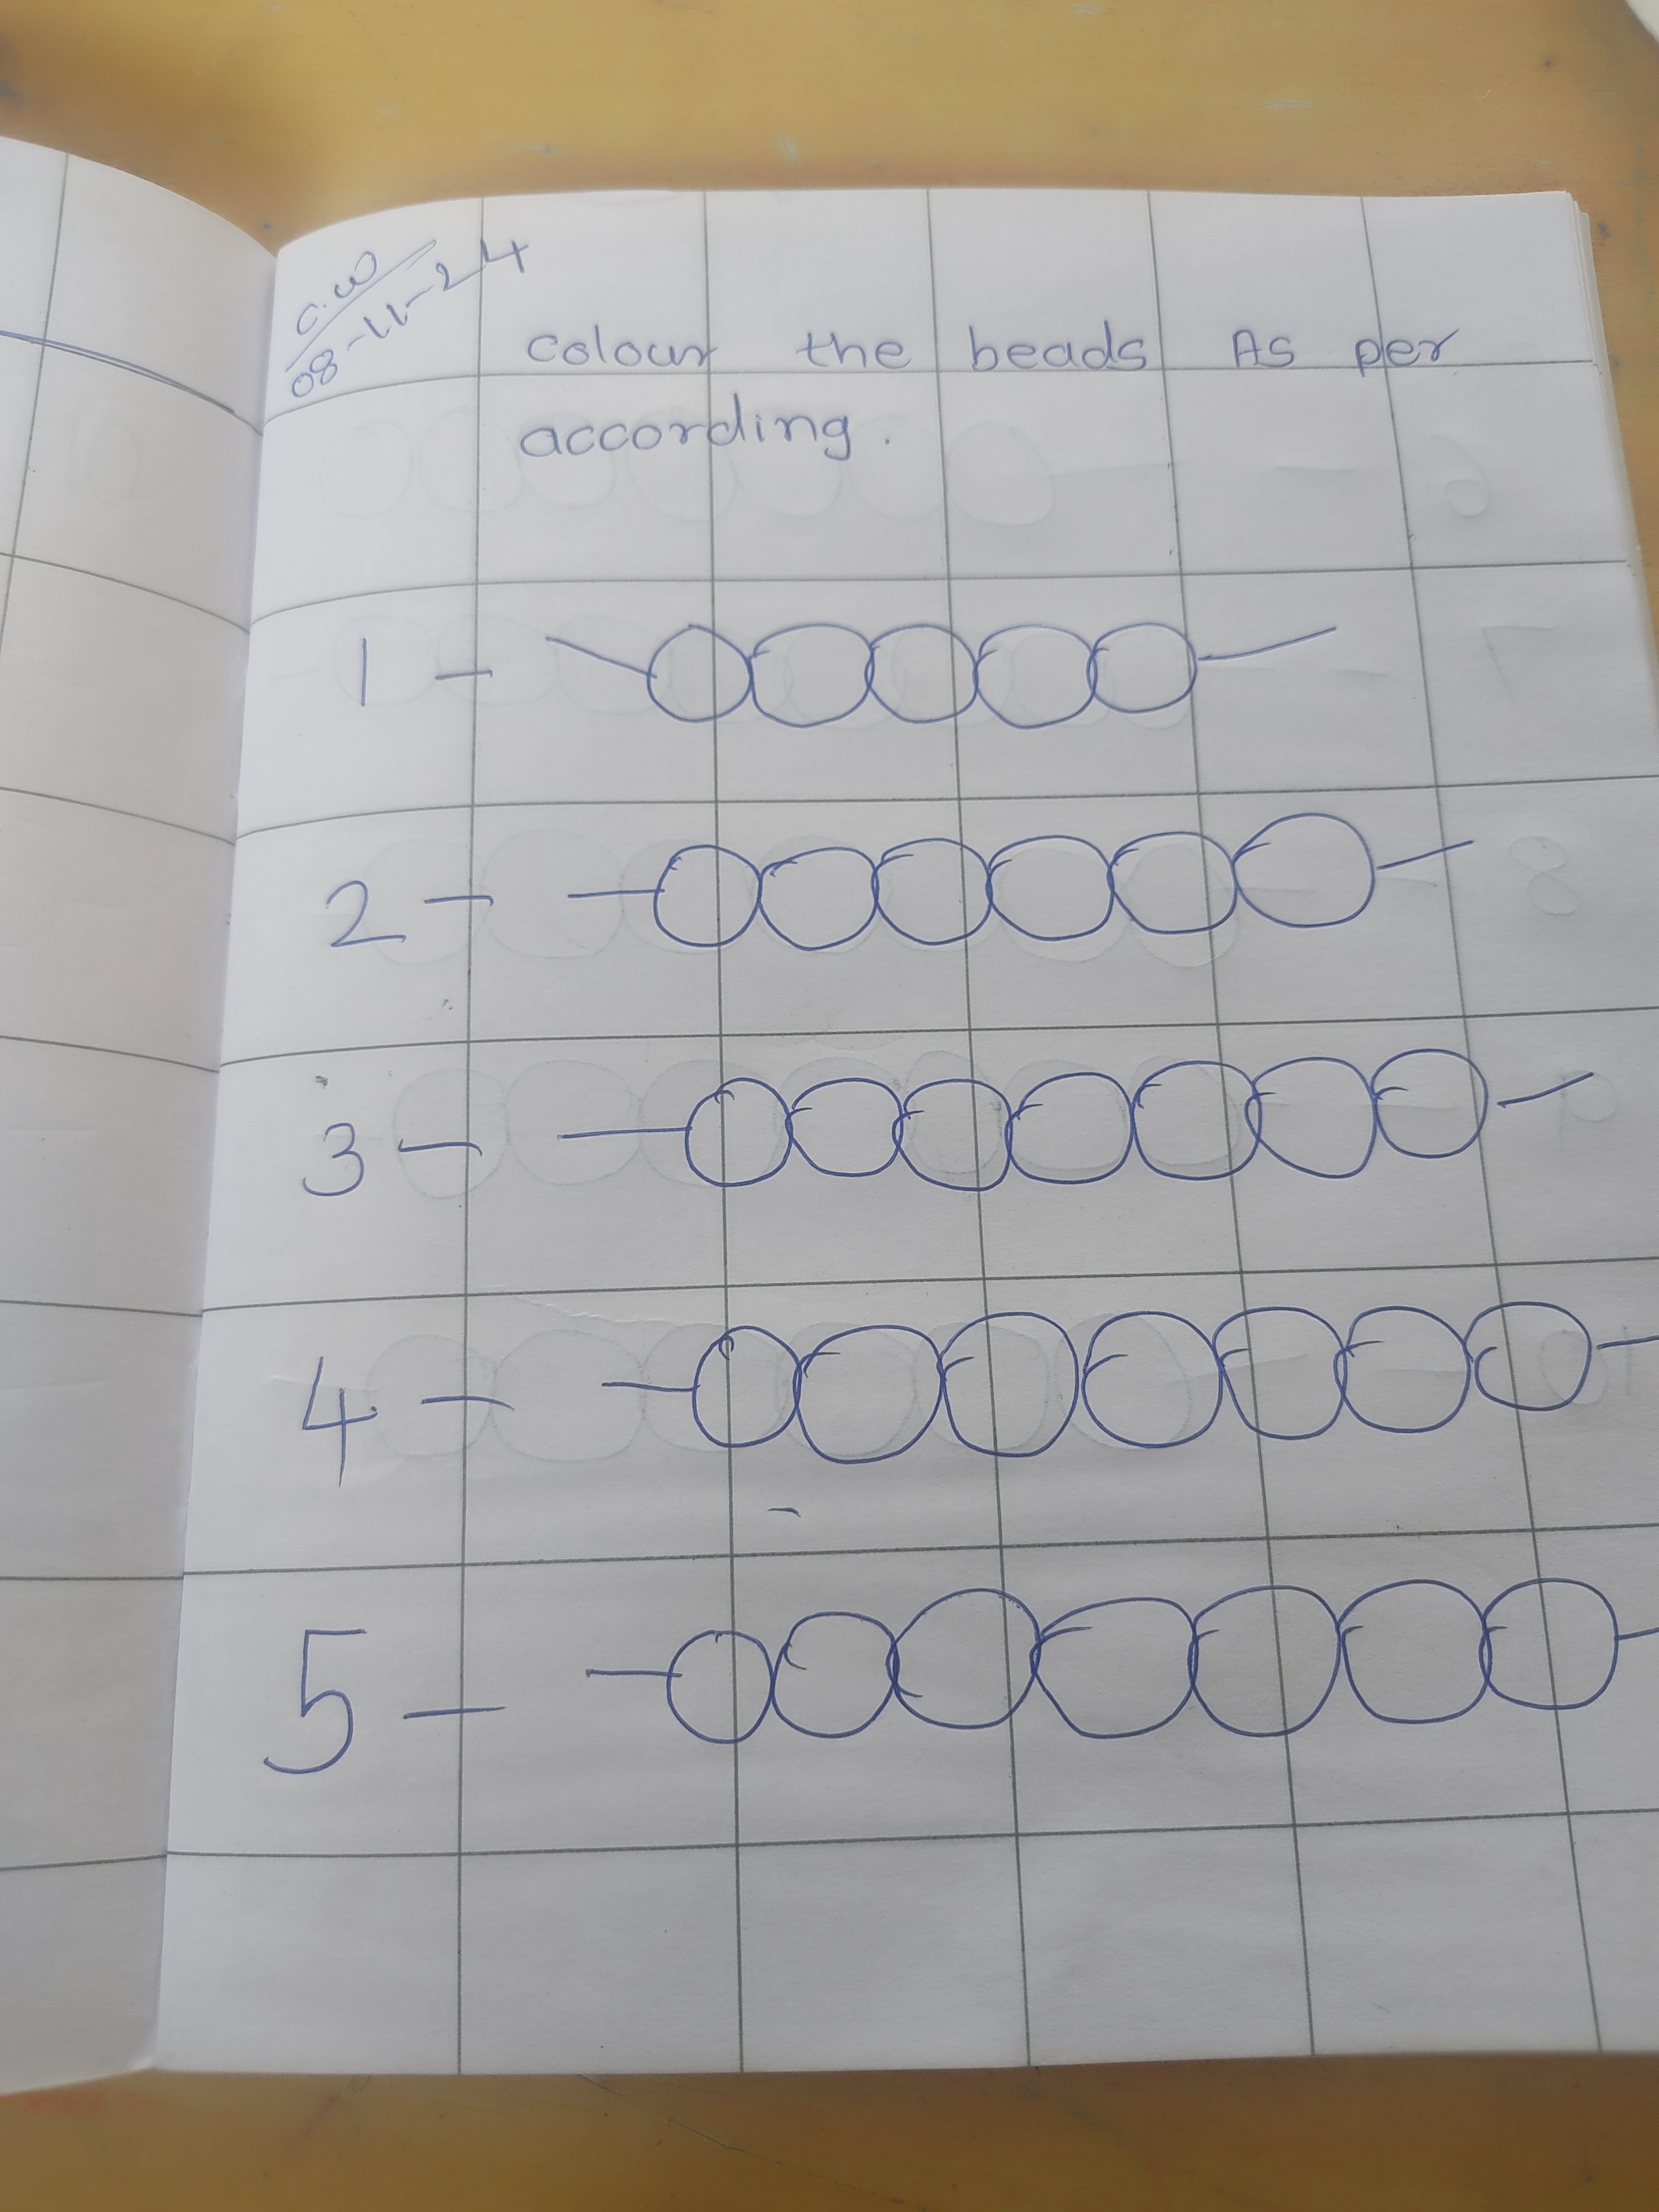 C.W
08-11-24
colour the beads As per
according.
1 -
2 -
3 -
4 -
5 -